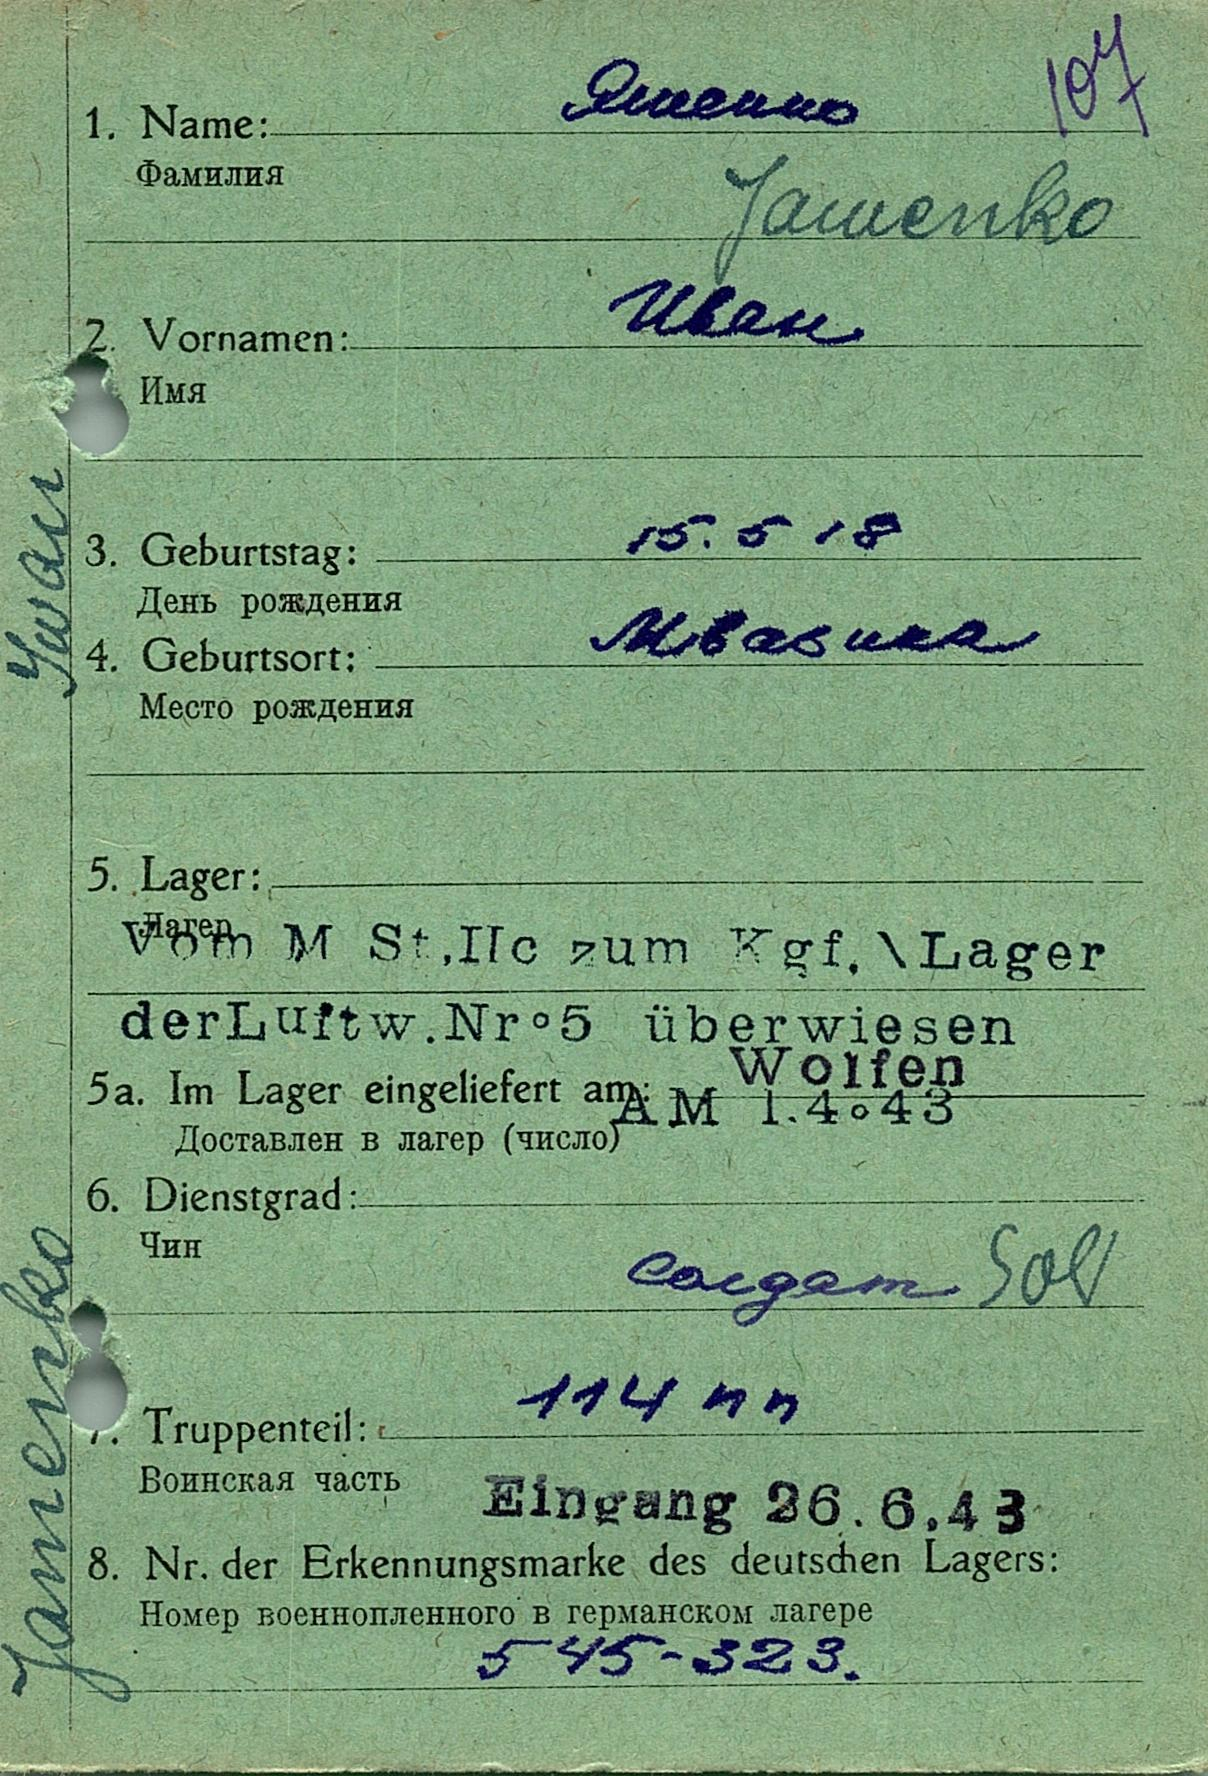 107
1. Name: Яшенко
Фамилия
Jamenko
2. Vornamen: Иван
Имя
Iwan
3. Geburtstag: 15. 5 18
День рождения
4. Geburtsort:
Место рождения
5. Lager:
Лагер
Vom M St,IIc zum Kgf.\Lager
derLuftw.Nr°5 überwiesen
Wolfen
5a. Im Lager eingeliefert am: AM 1.4°43
Доставлен в лагер (число)
6. Dienstgrad:
Чин
солдат Sol
Jamenko
7. Truppenteil: 114 пп
Воинская часть
Eingang 26.6.43
8. Nr. der Erkennungsmarke des deutschen Lagers:
Номер военнопленного в германском лагере
545-323.